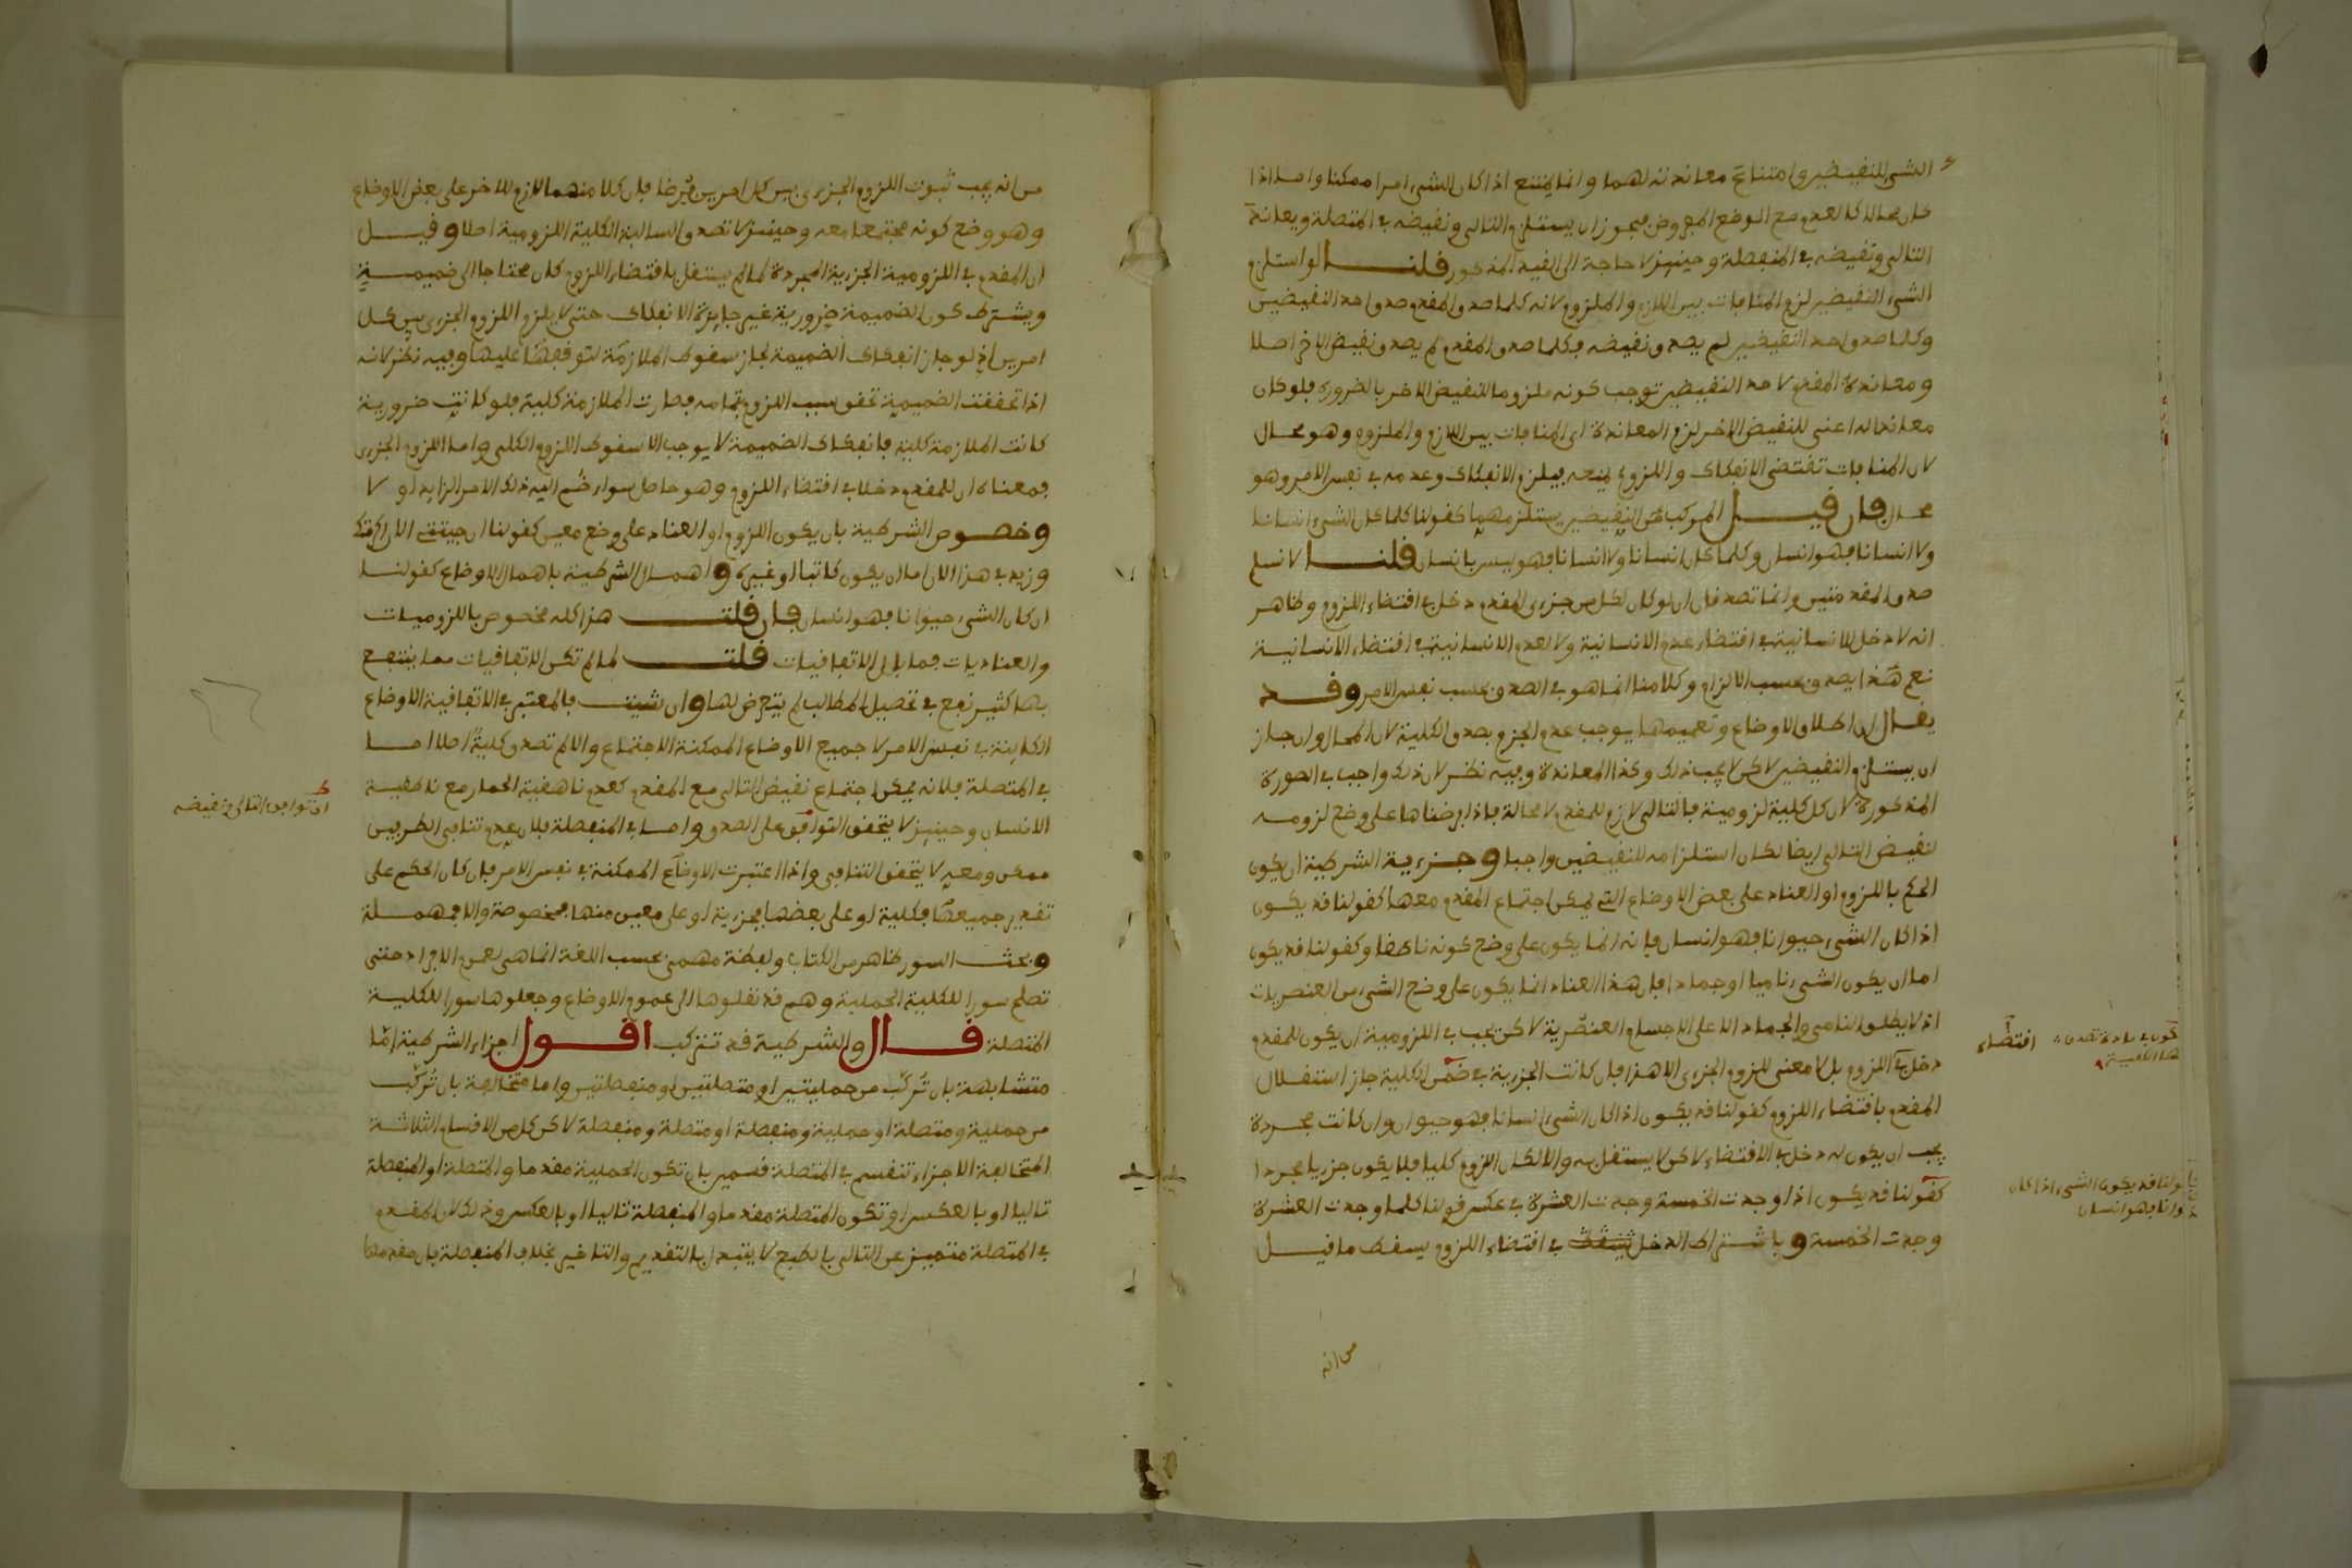 الشيء للنقيضين وامتناع معاندته لهما وانما يمتنع اذا كان الشيء امرا ممكنا واما اذا
كان محالا كالعدم مع الوضع المفروض فيجوز ان يستلزم التالي ونقيضه في المتصلة ويعاند
التالي ونقيضه في المنفصلة وحينيذ لا حاجة الى القيد المذكور قلنا لو استلزم
الشيء النقيضين لزم المنافات بين اللازم والملزوم لانه كلما صدق المقدم صدق احد النقيضين
وكلما صدق احد النقيضين لم يصدق نقيضه فكلما صدق المقدم لم يصدق نقيض الاخر اصلا
ومعاندة المقدم لاحد النقيضين توجب كونه ملزوما للنقيض الاخر بالضرورة فلو كان
معاندا له اعني للنقيض الاخر لزم المعاندة اي المنافات بين اللازم والملزوم وهو محال
لان المنافات تقتضي الانفكاك واللزوم يمنعه فيلزم الانفكاك وعدمه في نفس الامر وهو
محال فان قيل المركب من النقيضين يستلزمهما كقولنا كلما كان الشيء انسانا
ولا انسانا فهو انسان وكلما كان انسانا ولا انسانا فهو ليس بانسان قلنا لا نسلم
صدق المقدمتين وانما تصدقان ان لو كان لكل من جزءي المقدم دخل في اقتضاء اللزوم وظاهر
انه لا دخل للانسانية في اقتضاء عدم الانسانية ولا لعدم الانسانية في اقتضاء الانسانية
نعم هذا يصدق بحسب الالزام وكلامنا انما هو في الصدق بحسب نفس الامر وقد
يقال ان اطلاق الاوضاع وتعميمها يوجب عدم الجزم بصدق الكلية لان المحال وان جاز
ان يستلزم النقيضين لاكن لا يجب ذلك وكذا المعاندة وفيه نظر لان ذلك واجب في الصورة
المذكورة لان كل كلية لزومية فالتالي لازم للمقدم لا محالة فاذا فرضناها على وضع لزومه
لنقيض التالي ايضا لكان استلزامه للنقيضين واجبا وجزءية الشرطية ان يكون
الحكم باللزوم او العناد على بعض الاوضاع التي يمكن اجتماع المقدم معها كقولنا قد يكون
اذا كان الشيء حيوانا فهو انسان فانه انما يكون على وضع كونه ناطقا وكقولنا قد يكون
اما ان يكون الشيء ناميا او جمادا فان هذا العناد انما يكون على وضع الشيء من العنصريات
اذ لا يطلق النامي والجماد الا على الاجسام العنصرية لاكن يجب في اللزومية ان يكون للمقدم
دخل في اللزوم بل لا معنى للزوم الجزءي الا هذا فان كانت الجزءية في ضمن الكلية جاز استقلال
المقدم باقتضاء اللزوم كقولنا قد يكون اذا كان الشيء انسانا فهو حيوان وان كانت مجردة
يجب ان يكون له دخل في الاقتضاء لاكن لا يستقل به والا لكان اللزوم كليا فلا يكون جزييا مجردا
كقولنا قد يكون اذا وجدت الخمسة وجدت العشرة في عكس قولنا كلما وجدت العشرة
وجدت الخمسة وباشتراط الدخل في اقتضاء اللزوم يسقط ما قيل
اقتضاء
قولنا قد يكون الشيء اذا كان
فهو انسان
من انه
من انه يجب ثبوت اللزوم الجزءي بين كل امرين فرضا فان كلا منهما لازم للاخر على بعض الاوضاع
وهو وضع كونه مجتمعا معه وحينيذ لا تصدق السالبة الكلية اللزومية اصلا وقيل
ان المقدم في اللزومية الجزءية المجردة لما لم يستقل باقتضاء اللزوم كان محتاجا الى ضميمة
ويشترط كون الضميمة ضرورية غير جايزة الانفكاك حتى لا يلزم اللزوم الجزءي بين كل
امرين اذ لو جاز انفكاك الضميمة لجاز سقوط الملازمة لتوقفها عليها وفيه نظر لانه
اذا تحققت الضميمة تحقق سبب اللزوم بتمامه فصارت الملازمة كلية فلو كانت ضرورية
كانت الملازمة كلية فانفكاك الضميمة لا يوجب الا سقوط اللزوم الكلي واما اللزوم الجزءي
فمعناه ان للمقدم دخلا في اقتضاء اللزوم وهو حاصل سواء ضم اليه ذلك الامر الزايد او لا
وخصوص الشرطية بان يكون اللزوم او العناد على وضع معين كقولنا ان جيتني الان اكرمتك
وزيد في هذا الان اما ان يكون كاتبا او غيره واهمال الشرطية باهمال الاوضاع كقولنا
ان كان الشيء حيوانا فهو انسان فان قلت هذا كله مخصوص باللزوميات
والعناديات فما بال الاتفاقيات قلت لما لم تكن الاتفاقيات مما ينتفع
بها كثير نفع في تحصيل المطالب لم يتعرض لها وان شيت فالمعتبر في الاتفاقية الاوضاع
الكاينة في نفس الامر لا جميع الاوضاع الممكنة الاجتماع والا لم تصدق كلية اصلا اما
في المتصلة فلانه يمكن اجتماع نقيض التالي مع المقدم كعدم ناهقية الحمار مع ناطقية
الانسان وحينيذ لا يتحقق التوافق على الصدق واما في المنفصلة فلان عدم تنافي الطرفين
ممكن ومعه لا يتحقق التنافي واذا اعتبرت الاوضاع الممكنة في نفس الامر فان كان الحكم على
تقدير جميعها فكلية او على بعضها فجزءية او على معين منها فمخصوصة والا فمهملة
وبحث السور ظاهر من الكتاب ولفظة مهمى بحسب اللغة انما هي لعموم الافراد حتى
تصلح سورا للكلية الحملية وهم قد نقلوها الى عموم الاوضاع وجعلوها سورا للكلية
المتصلة قال والشرطية قد تتركب اقول اجزاء الشرطية اما
متشابهة بان تركب من حمليتين او متصلتين او منفصلتين واما متخالفة بان تركب
من حملية ومتصلة او حملية ومنفصلة او متصلة ومنفصلة لاكن كل من الاقسام الثلاثة
المتخالفة الاجزاء تنقسم في المتصلة قسمين بان تكون الحملية مقدما والمتصلة او المنفصلة
تاليا او بالعكس او تكون المتصلة مقدما والمنفصلة تاليا او بالعكس وذلك لان المقدم
في المتصلة متميز عن التالي بالطبع لا يتبدل بالتقديم والتاخير بخلاف المنفصلة فان مقدمها
اي توافق التالي ونقيضه